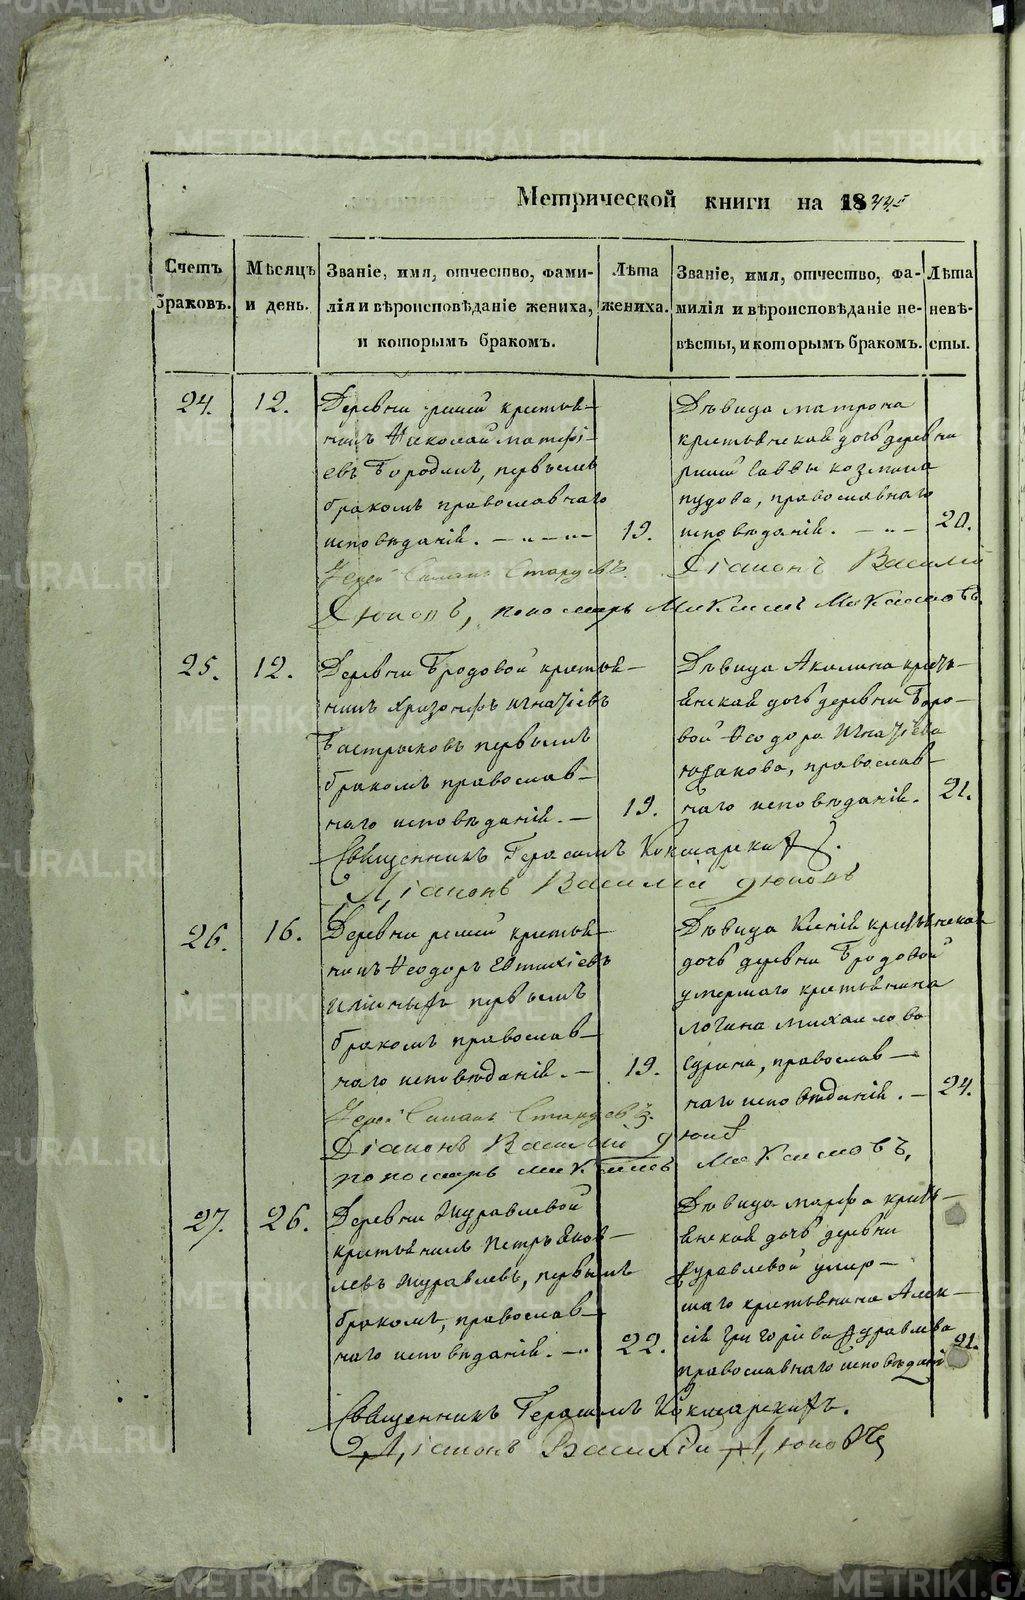 METRIKI.GASO-URAL.RU
Метрической книги на 1844й
Счетъ браковъ.
Мѣсяцъ и день.
Званіе, имя, отчество, фами-
лія и вѣроисповѣданіе жениха,
и которымъ бракомъ.
Лѣта жениха.
Званіе, имя, отчество, фа-
милія и вѣроисповѣданіе не-
вѣсты, и которымъ бракомъ.
Лѣта невѣ-
сты.
24. 12.
Деревни крестья-
нинъ Николай Матфі-
евъ Бородинъ, первымъ
бракомъ православнаго
исповѣданія. 19.
Дѣвица Матрона
крестьянская дочь деревни
Саввы Козмина
Пудова, православнаго
исповѣданія. 20.
Іерей Симеонъ Старцевъ. Діаконъ Василій
Дюковъ, пономарь Максимъ Максимовъ.
25. 12.
Деревни Бродовой крестья-
нинъ Хризонфъ Игнатіевъ
Бастрыковъ первымъ
бракомъ православ-
наго исповѣданія. 19.
Дѣвица Акилина кресть-
янская дочь деревни Бро-
вой Ѳеодора Игнатіева
православ-
наго исповѣданія. 21.
Священникъ Герасимъ Кокшарскій.
Діаконъ Василій Дюковъ
26. 16.
Деревни крестья-
нинъ Ѳеодоръ Евтихіевъ
первымъ
бракомъ православ-
наго исповѣданія. 19.
Дѣвица Ксенія крестьянская
дочь деревни Бродовой
умершаго крестьянина
Логина Михаилова
Сурина, православ-
наго исповѣданія. 24.
Іерей Симеонъ Старцевъ.
Діаконъ Василій Дюков
пономарь Максимъ Максимовъ,
27. 26.
Деревни Журавлевой
крестьянинъ Петръ Яков-
левъ Журавлевъ, первымъ
бракомъ, православ-
наго исповѣданія. 22.
Дѣвица Марфа кресть-
янская дочь деревни
Журавлевой умер-
шаго крестьянина Алек-
сія Григоріева Журавлева
православнаго исповѣданія 21.
Священникъ Герасимъ Кокшарскій.
Діаконъ Василій Дюковъ